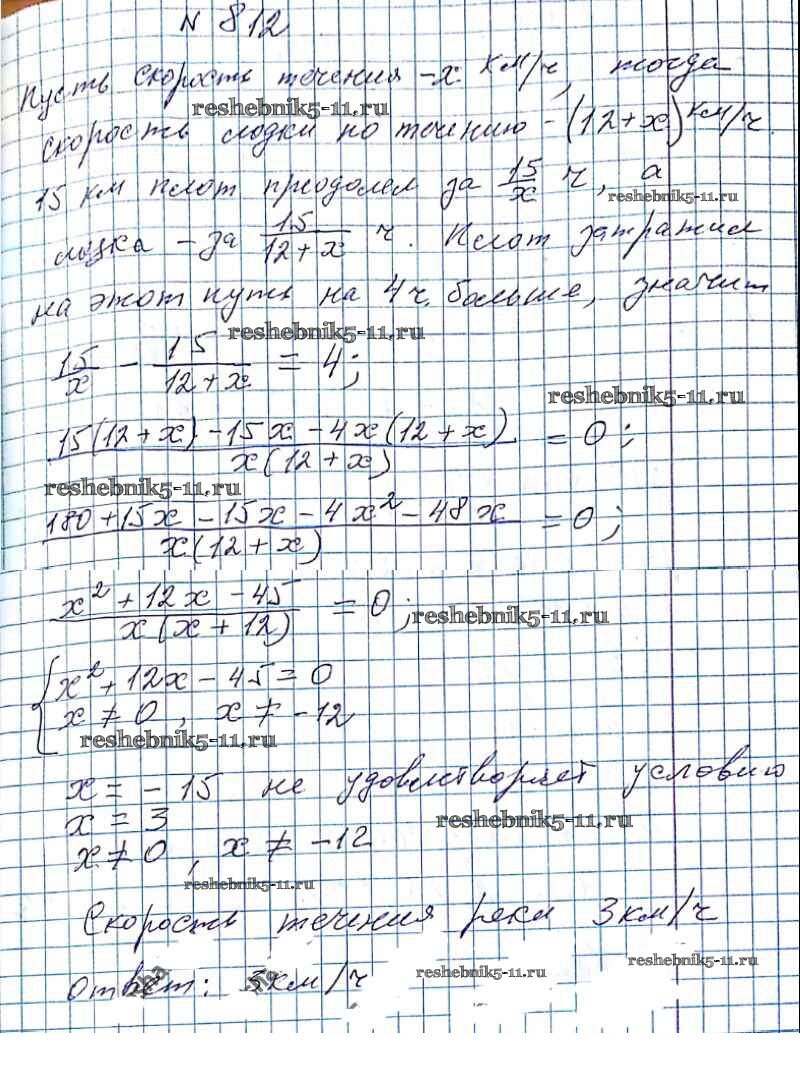 N 812
Пусть скорость течения - x км/ч, тогда
reshebnik5-11.ru
скорость лодки по течению - (12+x) км/ч.
15 км плот преодолел за 15/x ч, а
reshebnik5-11.ru
лодка - за 15/(12+x) ч. Плот затратил
на этот путь на 4 ч. больше, значит
reshebnik5-11.ru
15/x - 15/(12+x) = 4;
reshebnik5-11.ru
(15(12+x) - 15x - 4x(12+x))/(x(12+x)) = 0;
reshebnik5-11.ru
(180+15x - 15x - 4x² - 48x)/(x(12+x)) = 0;
(x² + 12x - 45)/(x(x+12)) = 0;
reshebnik5-11.ru
{ x² + 12x - 45 = 0
x ≠ 0, x ≠ -12
reshebnik5-11.ru
x = - 15 не удовлетворяет условию
x = 3
reshebnik5-11.ru
x ≠ 0, x ≠ -12
reshebnik5-11.ru
Скорость течения реки 3 км/ч
reshebnik5-11.ru
Ответ: 3 км/ч
reshebnik5-11.ru